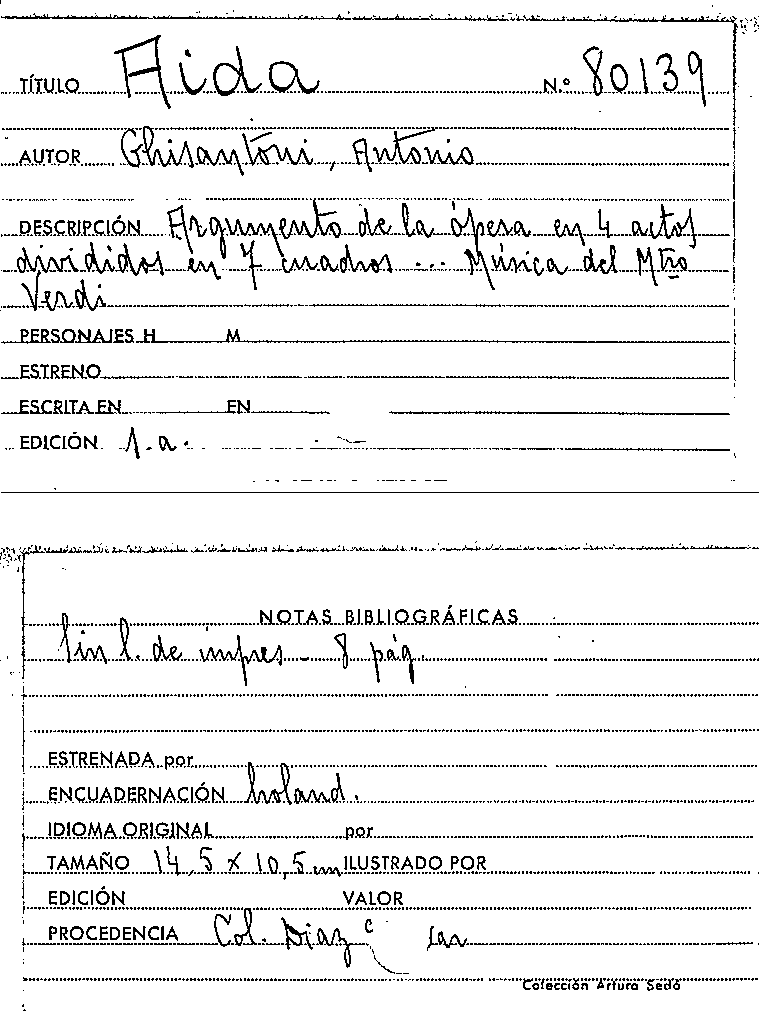 TÍTULO Aida N.º 80139
AUTOR Ghisantoni, Antonio
DESCRIPCIÓN Argumento de la ópera en 4 actos
divididos en 7 cuadros ... Música del Mtro
Verdi
PERSONAJES H M
ESTRENO
ESCRITA EN EN
EDICIÓN s.a.
NOTAS BIBLIOGRÁFICAS
Sin l. de impres - 8 pág.
ESTRENADA por
ENCUADERNACIÓN holand.
IDIOMA ORIGINAL por
TAMAÑO 14,5 x 10,5 cm ILUSTRADO POR
EDICIÓN VALOR
PROCEDENCIA Col. Diaz
Colección Arturo Sedó